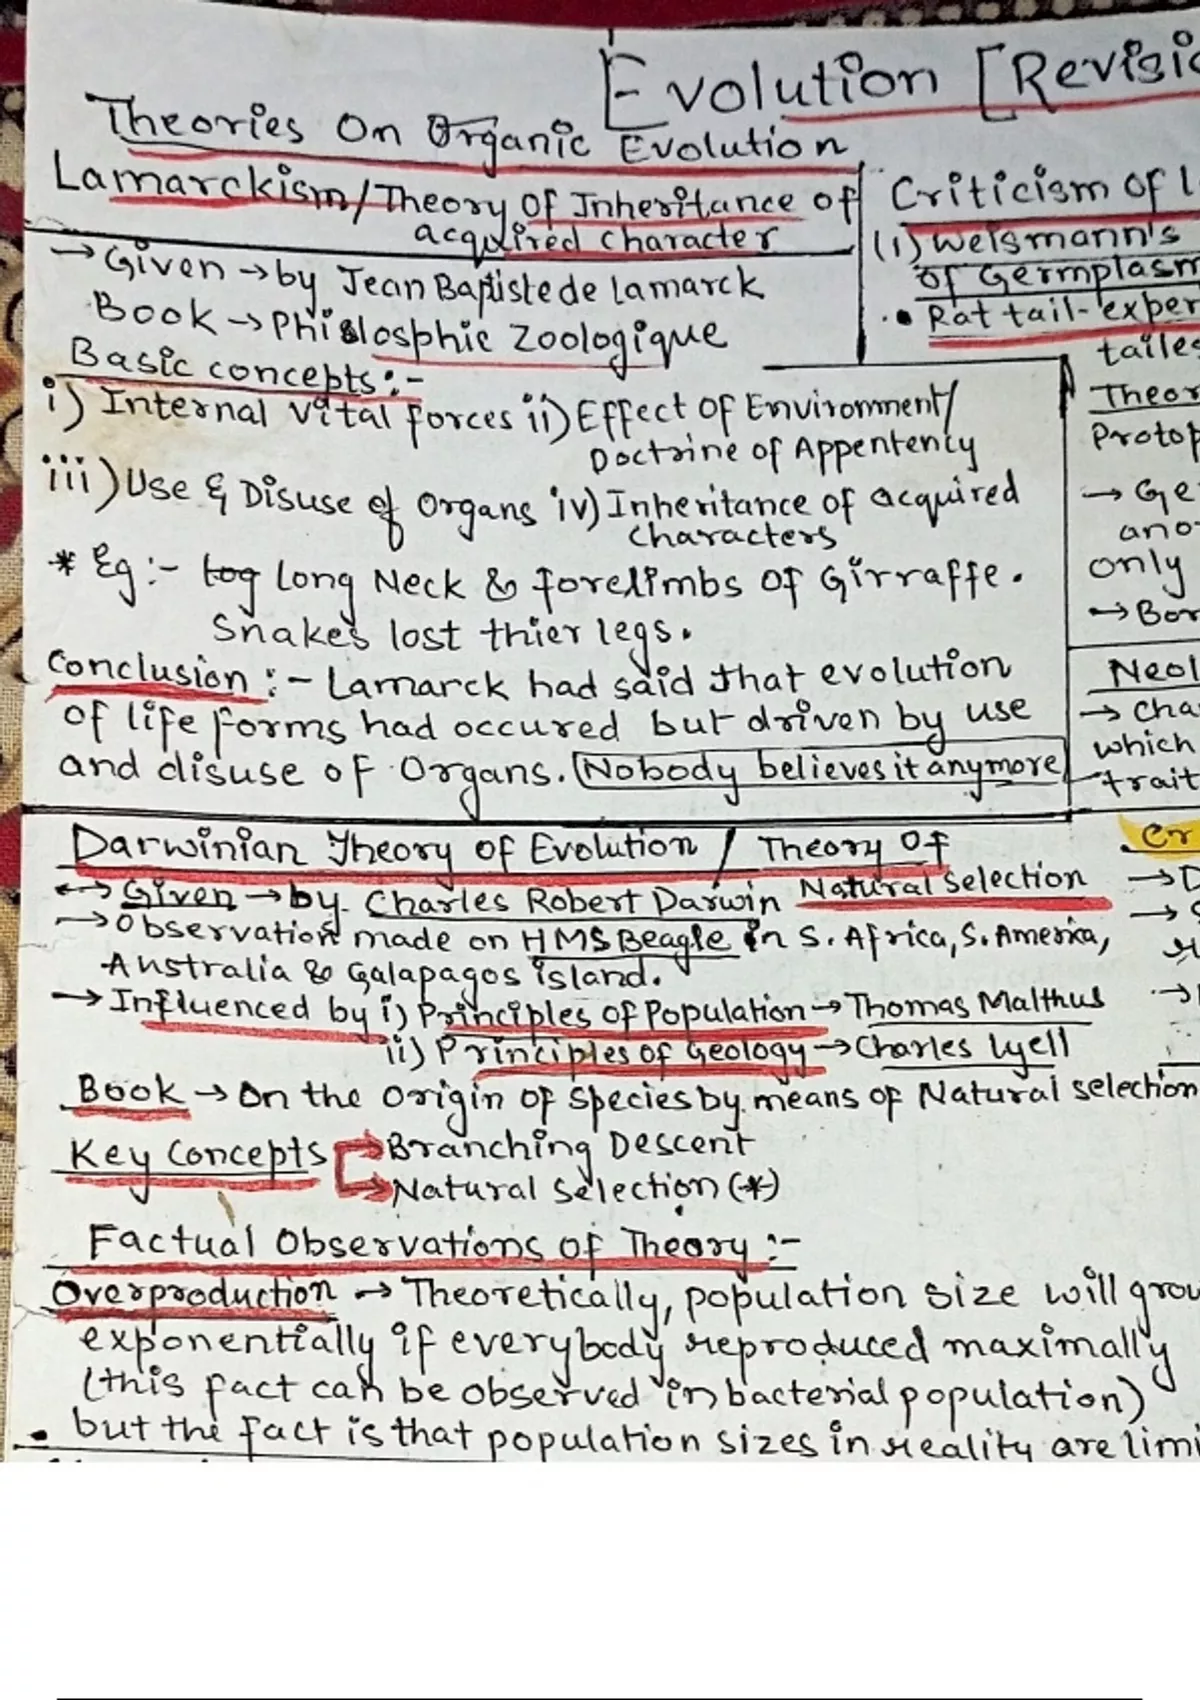 Evolution [Revisio
Theories On Organic Evolution
Lamarckism/Theory Of Inheritance of
acquired character
→ Given → by Jean Baptiste de lamarck
Book → Philosphie Zoologique
Basic concepts:-
i) Internal vital forces ii) Effect of Environment/
Doctrine of Appentency
iii) Use & Disuse of Organs iv) Inheritance of acquired
characters
* Eg:- Long Neck & forelimbs of Girraffe.
Snakes lost thier legs.
Conclusion :- Lamarck had said that evolution
of life forms had occured but driven by use
and disuse of Organs. Nobody believes it anymore
Criticism of L
(i) Weismann's
of Germplasm
• Rat tail-exper
tailes
Theor
Protop
→ Ge
ano
only
→ Bor
Neol
→ Cha
which
trait
Darwinian Theory of Evolution / Theory Of
Natural Selection
→ Given → by Charles Robert Darwin
→ Observation made on HMS Beagle in S. Africa, S. America,
Australia & Galapagos island.
→ Influenced by i) Principles of Population → Thomas Malthus
ii) Principles of Geology → Charles Lyell
Book → On the Origin of species by means of Natural selection
Key Concepts → Branching Descent
→ Natural Selection (*)
Cr
Factual Observations of Theory :-
Overproduction → Theoretically, population size will grow
exponentially if everybody reproduced maximally
(this fact can be observed in bacterial population)
• but the fact is that population sizes in reality are limi